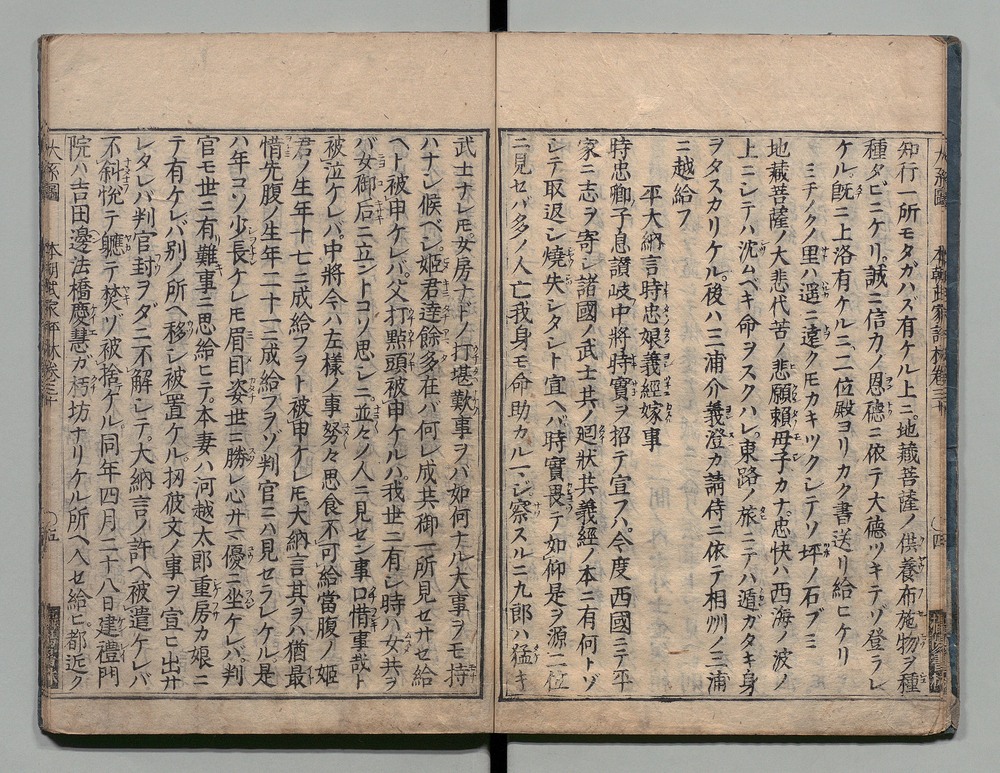 知行一所モタガハズ有ケル上ニ地藏菩薩ノ供養布施物ヲ種
種タビニケリ誠ニ信力ノ恩德ニ依テ大德ツキテゾ登ラレ
ケル既ニ上洛有ケルニ二位殿ヨリカク書送リ給ヒケリ
ミチノクノ里ハ遥ニ遠クモカキツクシテソ坪ノ石ブミ
地藏菩薩ノ大悲代苦ノ悲願賴母子カナ忠快ハ西海ノ波ノ
上ニシテハ沈ムベキ命ヲタスクハレ東路ノ旅ニテハ遁ガタキ身
ヲタスカリケル後ハ三浦介義澄カ請待ニ依テ相州ノ三浦
ニ越給フ
平大納言時忠娘義經嫁事
時忠卿子息讚岐中將時實ヲ招テ宣フハ今度西國ニテ平
家ニ志ヲ寄シ諸國ノ武士共ノ廻狀共義經ノ本ニ有何トゾ
シテ取返シ燒失シタシト宣ヘバ時實畏テ如仰是ヲ源二位
ニ見セバ多ノ人亡我身モ命助カルマジ察スルニ九郎ハ猛キ
武士ナレ𪜈女房ナドノ打堪歎事ヲハ如何ナル大事ヲモ持
ハナシ候ベシ姬君逹餘多在バ何レ成共御一所見セサセ給
ヘト被申ケレバ父打點頭被申ケルハ我世ニ有シ時ハ女共ヲ
バ女御后ニ立ントコソ思シニ並々ノ人ニ見セン事口惜事哉ト
被泣ケレバ中將今ハ左樣ノ事努々思食不可給當腹ノ姬
君ノ生年十七ニ成給フヲト被申ケレ𪜈大納言其ヲハ猶最
惜先腹ノ生年二十一ニ成給フヲゾ判官ニハ見セラレケル是
ハ年コソ少長ケレ𪜈眉目姿世ニ勝レ心サマ優ニ坐ケレバ判
官モ世ニ有難事ニ思給ヒテ本妻ハ河越太郎重房カ娘ニ
テ有ケレバ別ノ所ヘ移シ被置ケル扨彼文ノ事ヲ宣ヒ出サ
レタレバ判官封ヲダニ不解シテ大納言ノ許ヘ被遣ケレバ
不斜悅テ軈テ焚ツ被捨ゲル同年四月二十八日建禮門
院ハ吉田邊法橋慶慧カ朽坊ナリケル所ヘ入セ給ヒ都近ク